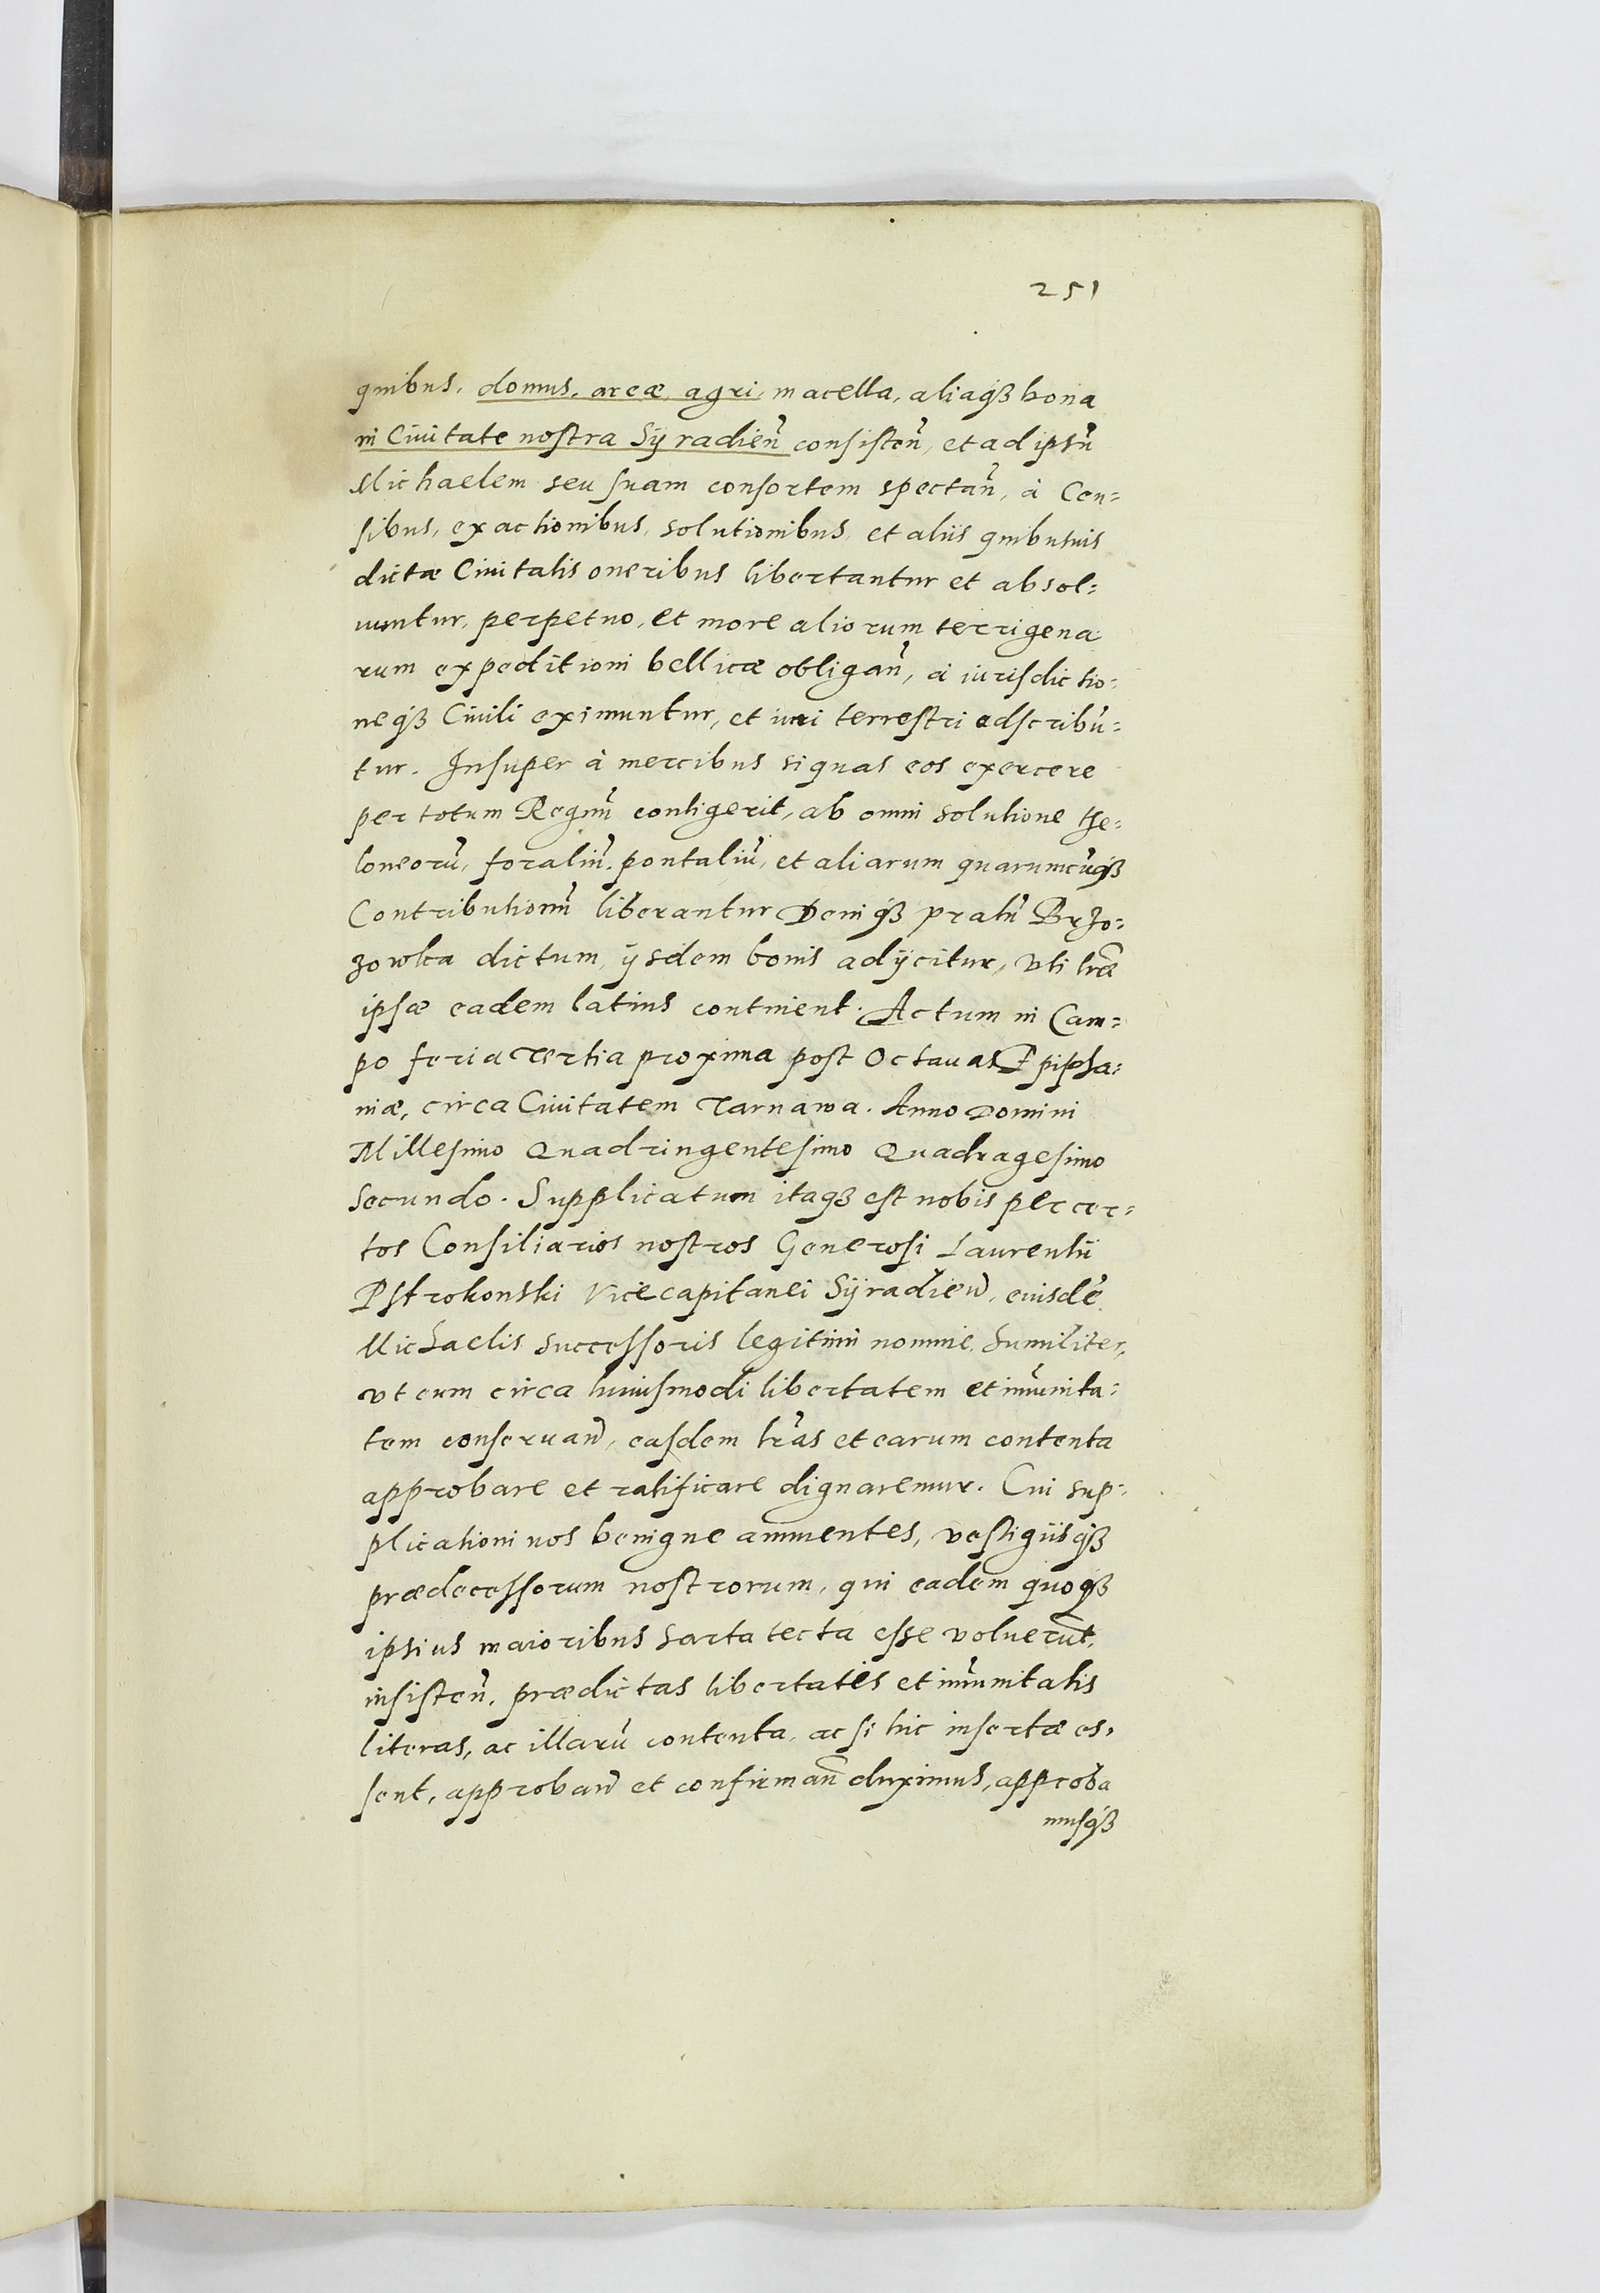 251
quibus, domus, areæ, agri, macella, aliaq́ꝫ bona
in Ciuitate nostra Syradien̄ consisten̄, et ad ipsū
Michaelem seu suam consortem spectan̄, à Cen=
sibus, exactionibus, solutionibus, et aliis quibusuis
dictæ Ciuitatis oneribus libertantur et absol=
uuntur, perpetuo, et more aliorum terrigena
rum expeditioni bellicæ obligan̄, à iurisdictio=
neq́ꝫ Ciuili eximuntur, et iuri terrestri adscribū=
tur. Insuper à mercibus si quas eos exercere
per totum Regnū contigerit, ab omni solutione the=
loneorū, foraliū, pontaliū, et aliarum quarumcūq́ꝫ
Contributionū liberantur Deniq́ꝫ pratū Brzo=
zowka dictum, ijsdem bonis adijcitur, vti lr̄æ
ipsæ eadem latius continent. Actum in Cam=
po feria tertia proxima post Octauas Epipha=
niæ, circa Ciuitatem Tarnawa. Anno Domini
Millesimo Quadringentesimo Quadragesimo
secundo. Supplicatum itaqꝫ est nobis per cer=
tos Consiliarios nostros Generosi Laurentii
Pstrokonski Vicecapitanei Syradien̄, eiusdē
Michaelis successoris legitimi nomine, humiliter,
vt eum circa huiusmodi libertatem et im̄unita=
tem conseruan̄, easdem lr̄as et earum contenta
approbare et ratificare dignaremur. Cui sup=
plicationi nos benigne annuentes, vestigiisq́ꝫ
prædecessorum nostrorum, qui eadem quoqꝫ
ipsius maioribus sarta tecta esse voluerūt,
insisten̄, prædictas libertatis et im̄unitatis
literas, ac illarū contenta, ac si hic insertæ es=
sent, approban̄ et confirman̄ duximus, approba
musq́ꝫ